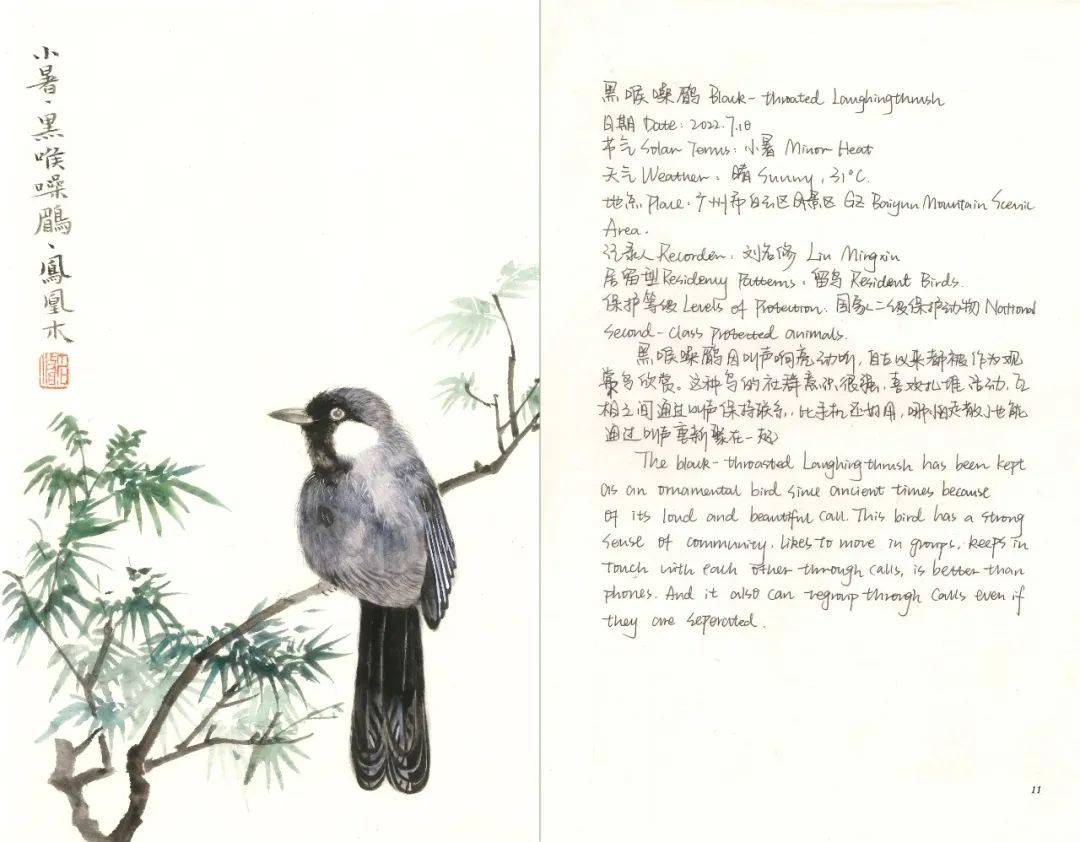 小暑、黑喉噪鹛、鳳凰木
黑喉噪鹛 Black-throated Laughingthrush
日期 Date: 2022.7.18
节气 Solar Terms: 小暑 Minor Heat
天气 Weather: 晴 Sunny, 31°C.
地点 Place: 广州市白云区风景区 GZ Baiyun Mountain Scenic
Area.
记录人 Recorder: 刘名修 Liu Mingxiu
居留型 Residency Patterns: 留鸟 Resident Birds.
保护等级 Levels of Protection: 国家二级保护动物 National
Second-class protected animals.
黑喉噪鹛因叫声响亮动听,自古以来都被作为观
赏鸟欣赏。这种鸟的社群意识很强,喜欢扎堆活动,互
相之间通过叫声保持联系,比手机还好用,哪怕走散了也能
通过叫声重新聚在一起
The black-throasted Laughingthrush has been kept
as an ornamental bird since ancient times because
of its loud and beautiful call. This bird has a strong
sense of community, likes to move in groups, keeps in
touch with each other through calls, is better than
phones. And it also can regroup through calls even if
they are seperated.
11